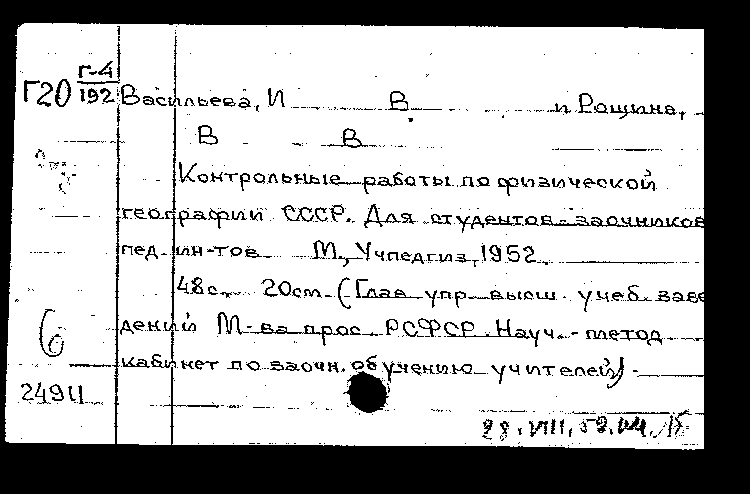 Г-4
Г20 192 Васильева, И В и Рощина,
В В
Контрольные работы по физической
географии СССР. Для студентов-заочников
пед. ин-тов М., Учпедгиз, 1952.
48с. 20см. (Глав упр. высш. учеб. заве
дений М-ва прос. РСФСР. Науч.-метод
6 кабинет по заочн. обучению учителей)
24911
28.VIII.52.